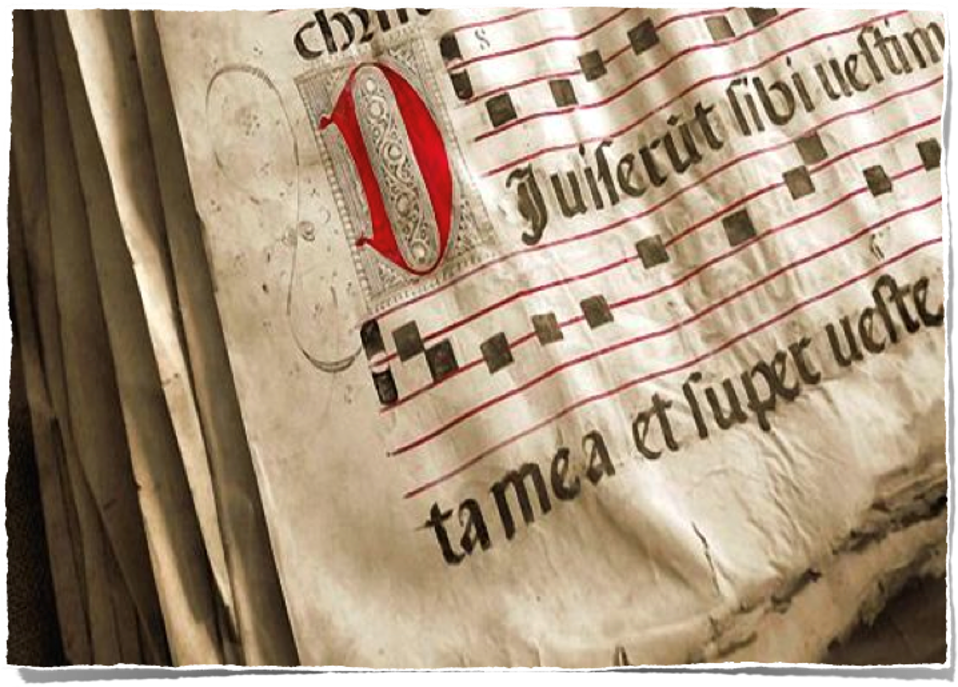 DIuiſerūt ſibi ueſtim
ta mea et ſuper ueſte